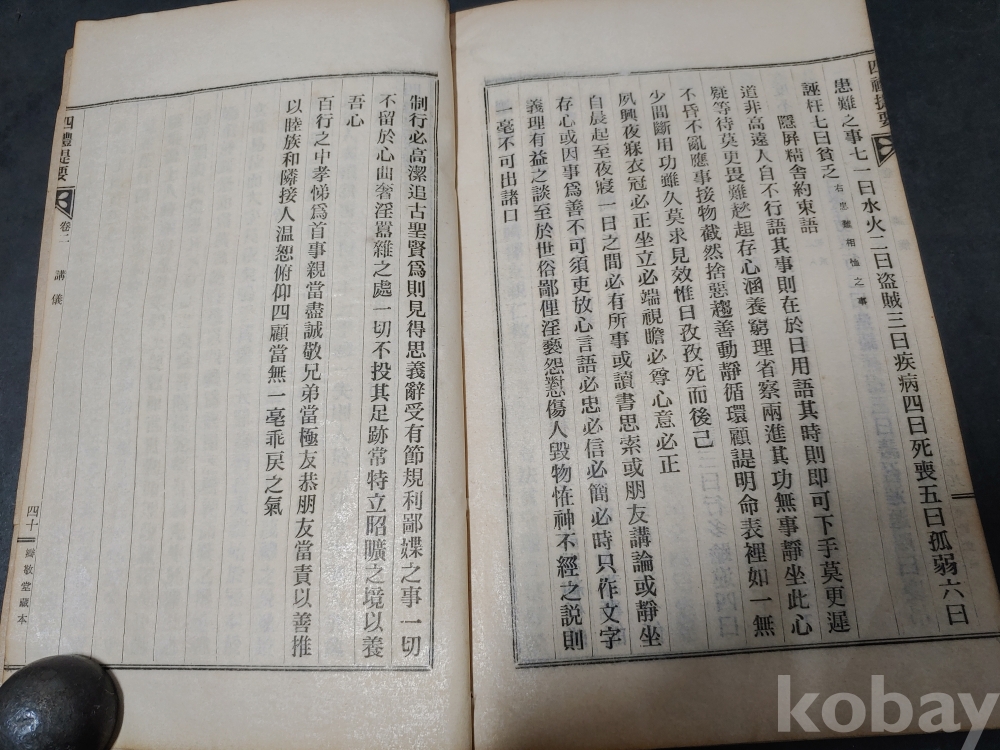 四禮提要
患難之事七一曰水火二曰盜賊三曰疾病四曰死喪五曰孤弱六曰
誣枉七曰貧乏 右患難相恤之事
隱屏精舍約束語
道非高遠人自不行語其事則在於日用語其時則即可下手莫更遲
疑等待莫更畏難趑趄存心涵養窮理省察兩進其功無事靜坐此心
不昏不亂應事接物截然捨惡趨善動靜循環顧諟明命表裡如一無
少間斷用功雖久莫求見效惟日孜孜死而後已
夙興夜寐衣冠必正坐立必端視瞻必尊心意必正
自晨起至夜寢一日之間必有所事或讀書思索或朋友講論或靜坐
存心或因事爲善不可須更放心言語必忠必信必簡必時只作文字
義理有益之談至於世俗鄙俚淫褻怨懟傷人毀物恠神不經之說則
一毫不可出諸口
制行必高潔追古聖賢爲則見得思義辭受有節規利鄙媟之事一切
不留於心曲奢淫囂雜之處一切不投其足跡常特立昭曠之境以養
吾心
百行之中孝悌爲首事親當盡誠敬兄弟當極友恭朋友當責以善推
以睦族和隣接人温恕俯仰四顧當無一毫乖戾之氣
四禮提要 卷二 講儀 四十 敬堂藏本
kobay